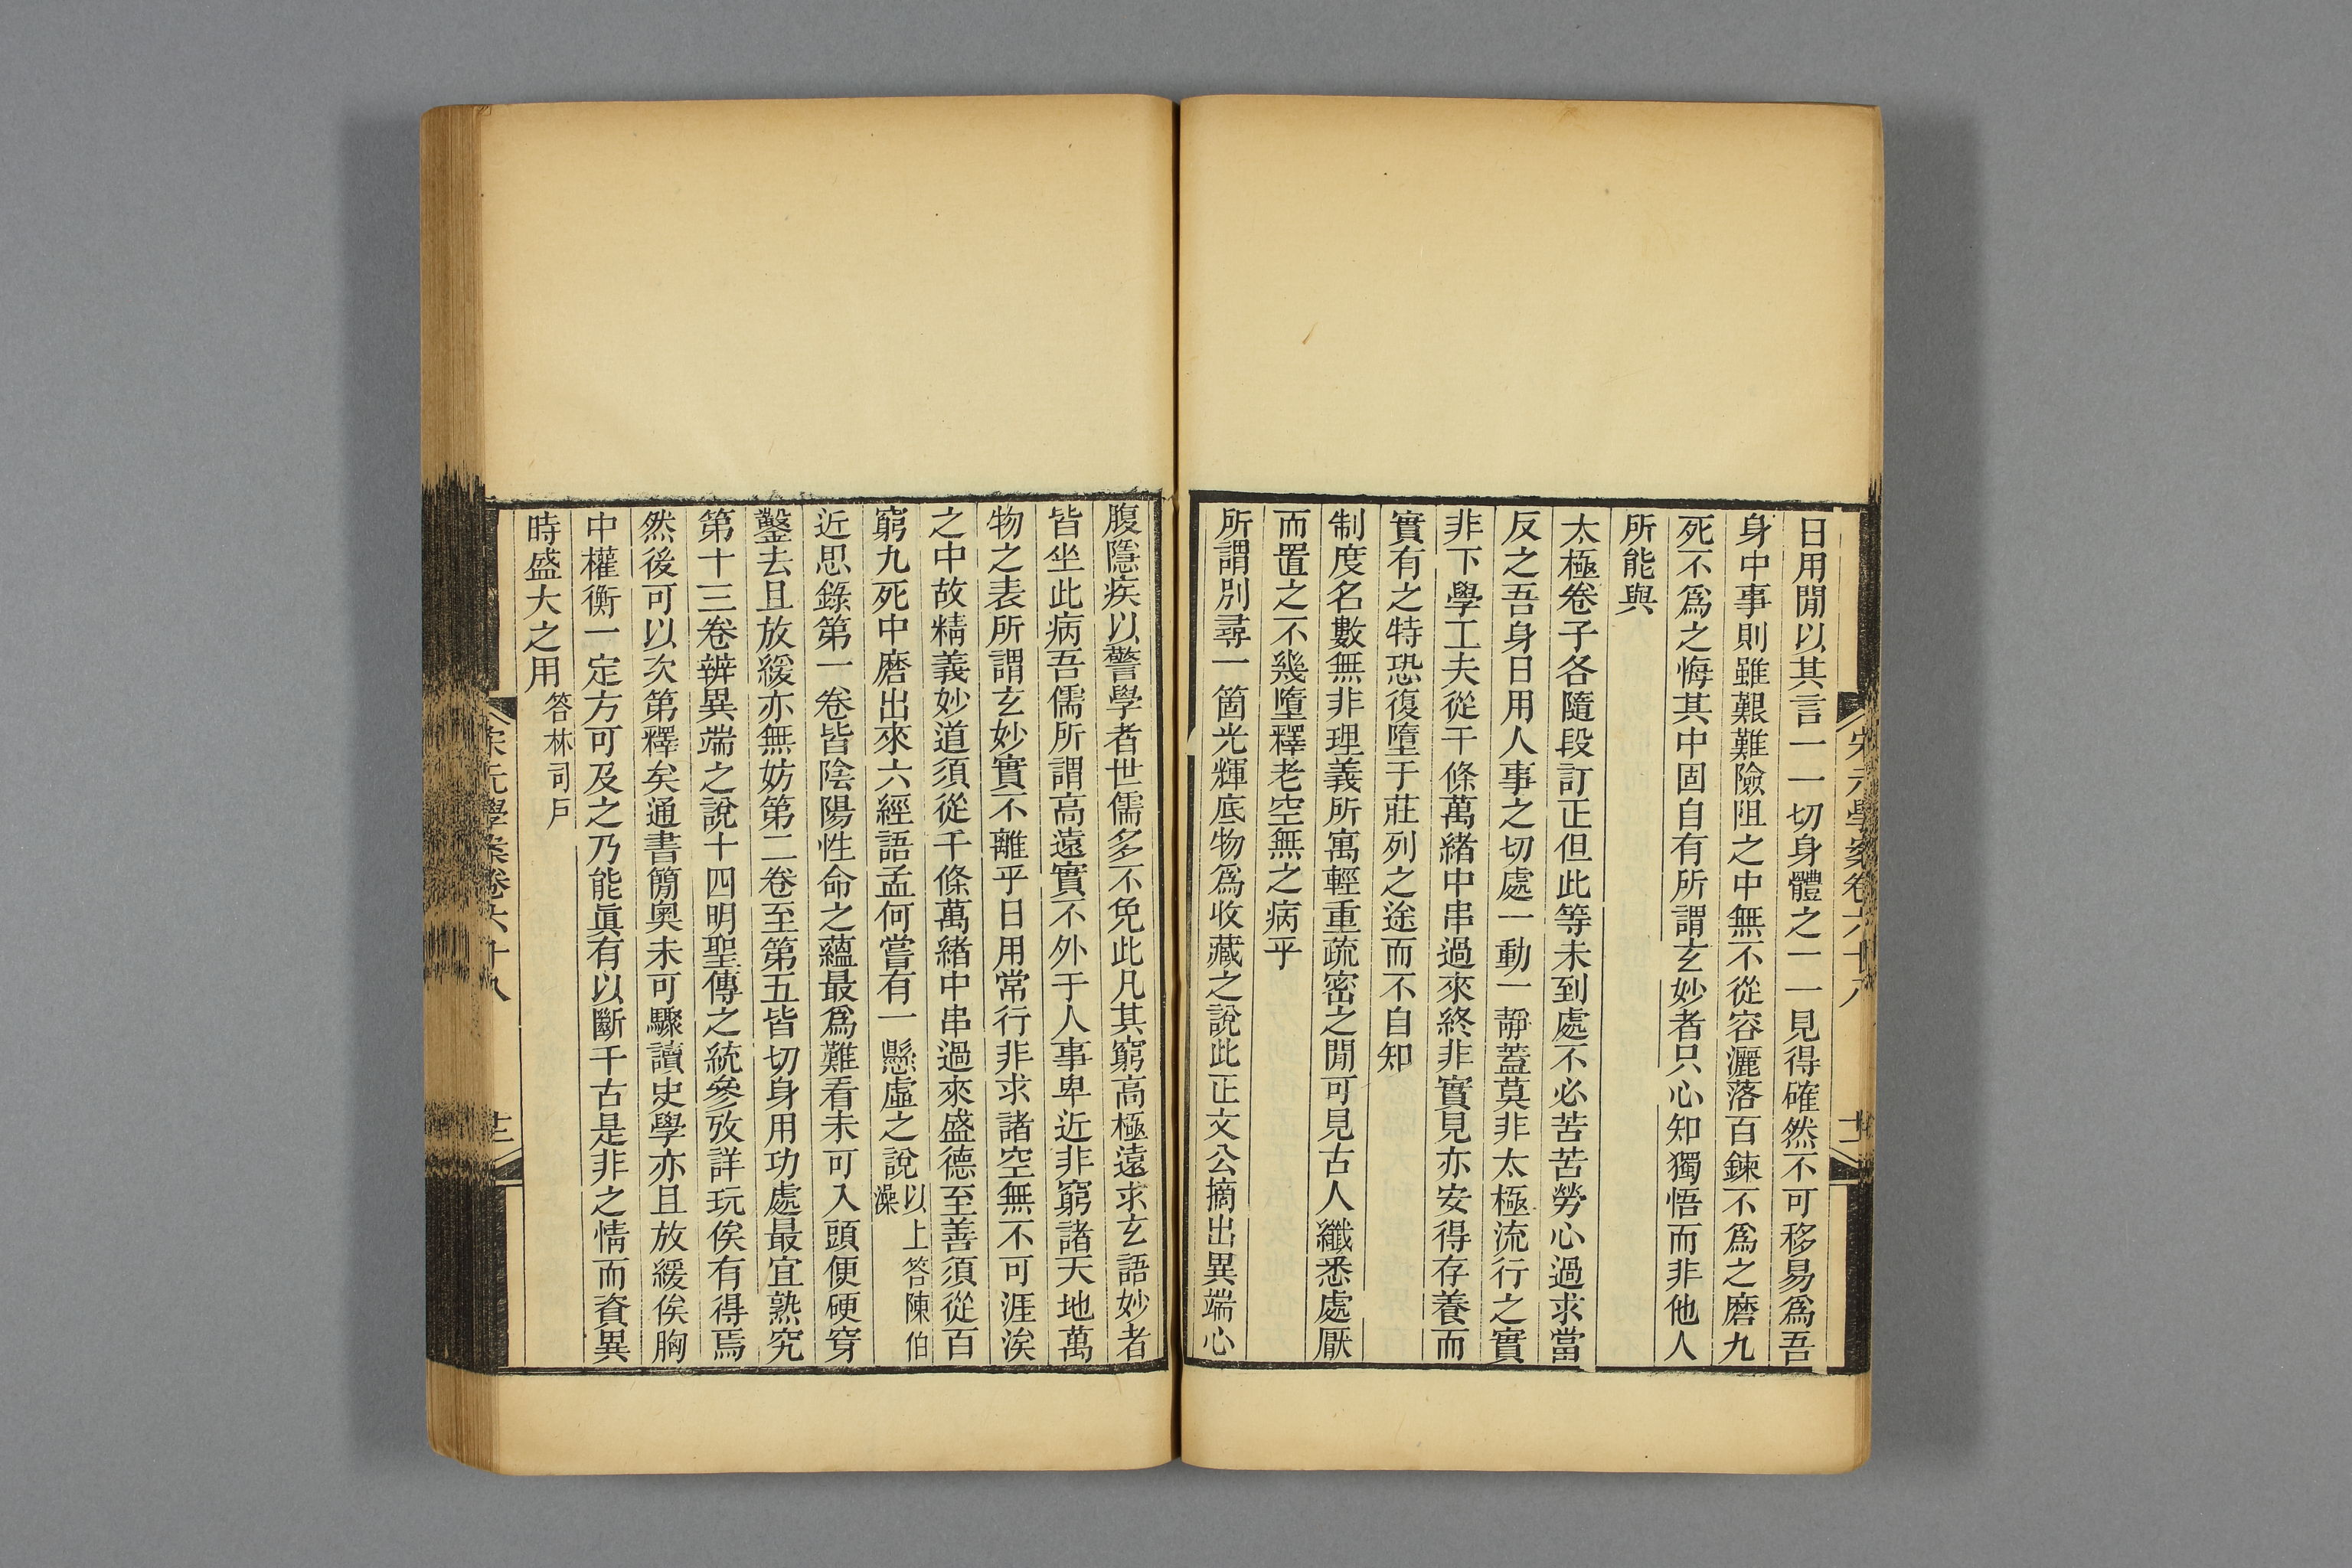 宋元學案卷六十八
十二
日用閒以其言一一切身體之一一見得確然不可移易爲吾
身中事則雖艱難險阻之中無不從容灑落百鍊不爲之磨九
死不爲之悔其中固自有所謂玄妙者只心知獨悟而非他人
所能與
太極卷子各隨段訂正但此等未到處不必苦苦勞心過求當
反之吾身日用人事之切處一動一靜蓋莫非太極流行之實
非下學工夫從千條萬緒中串過來終非實見亦安得存養而
實有之特恐復墮于莊列之途而不自知
制度名數無非理義所寓輕重疏密之閒可見古人纖悉處厭
而置之不幾墮釋老空無之病乎
所謂別尋一箇光輝底物爲收藏之說此正文公摘出異端心
腹隱疾以警學者世儒多不免此凡其窮高極遠求玄語妙者
皆坐此病吾儒所謂高遠實不外于人事卑近非窮諸天地萬
物之表所謂玄妙實不離乎日用常行非求諸空無不可涯涘
之中故精義妙道須從千條萬緒中串過來盛德至善須從百
窮九死中磨出來六經語孟何嘗有一懸虛之說以上答陳伯澡
近思錄第一卷皆陰陽性命之蘊最爲難看未可入頭便硬穿
鑿去且放緩亦無妨第二卷至第五皆切身用功處最宜熟究
第十三卷辨異端之說十四明聖傳之統參攷詳玩俟有得焉
然後可以次第釋矣通書簡奧未可驟讀史學亦且放緩俟胸
中權衡一定方可及之乃能眞有以斷千古是非之情而資異
時盛大之用答林司戶
宋元學案卷六十八
十三